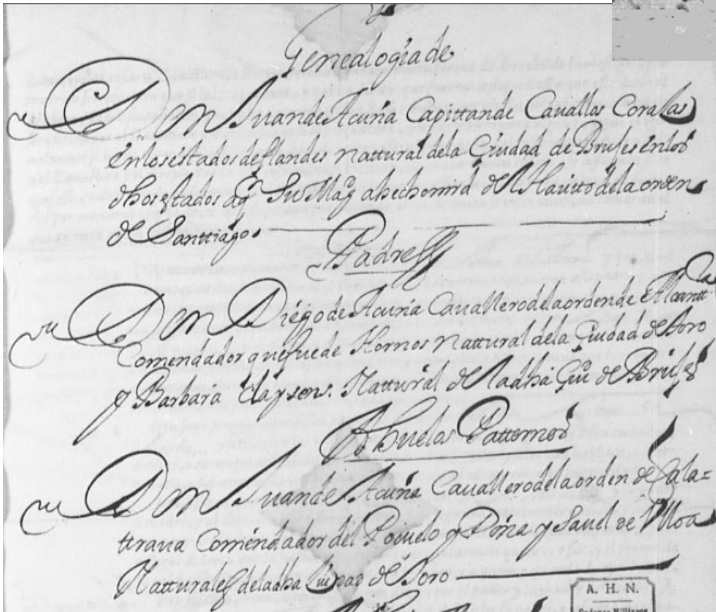 Genealogia de
Don Juan de Acuña Capittan de Cauallos Corasas
en los estados de flandes nattural de la Ciudad de Bruses en los
dhos estados aqn Su Magd a hecho mrd del Hauitto de la orden
de Santtiago
Padres
Don Diego de Acuña Cauallero de la orden de Alcantta
Comendador que fue de Hornos Nattural de la Ciudad de Toro
y Barbara Claysens. Nattural de la dha Ciud de Bruses
Abuelos Patternos
Don Juan de Acuña Cauallero de la orden de Cala=
traua Comendador del y Doña Ysauel de Vlloa
Natturales de la dha Ciudad de Toro
A. H. N.